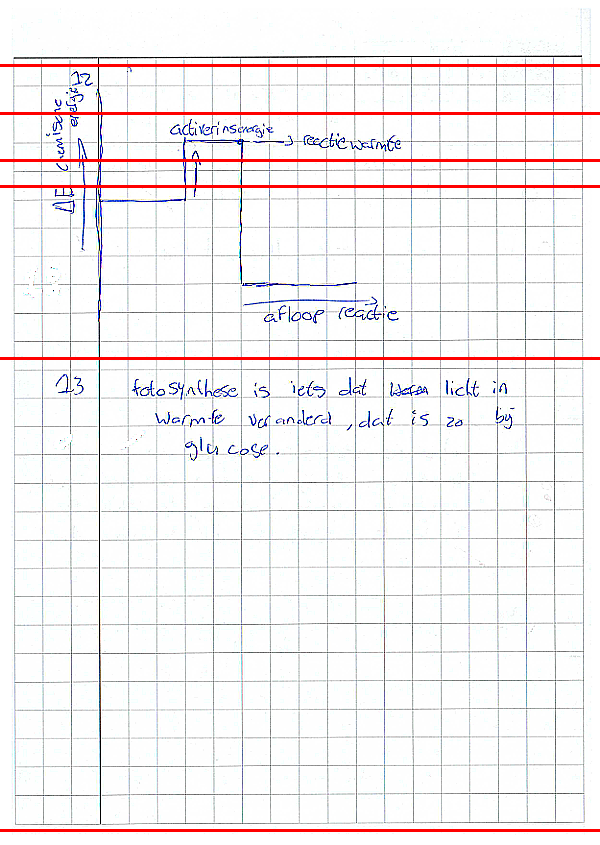 12
ΔE chemische
energie
activerinsenergie
reactiewarmte
afloop reactie
13 fotosynthese is iets dat licht in
warmte veranderd, dat is zo bij
glucose.